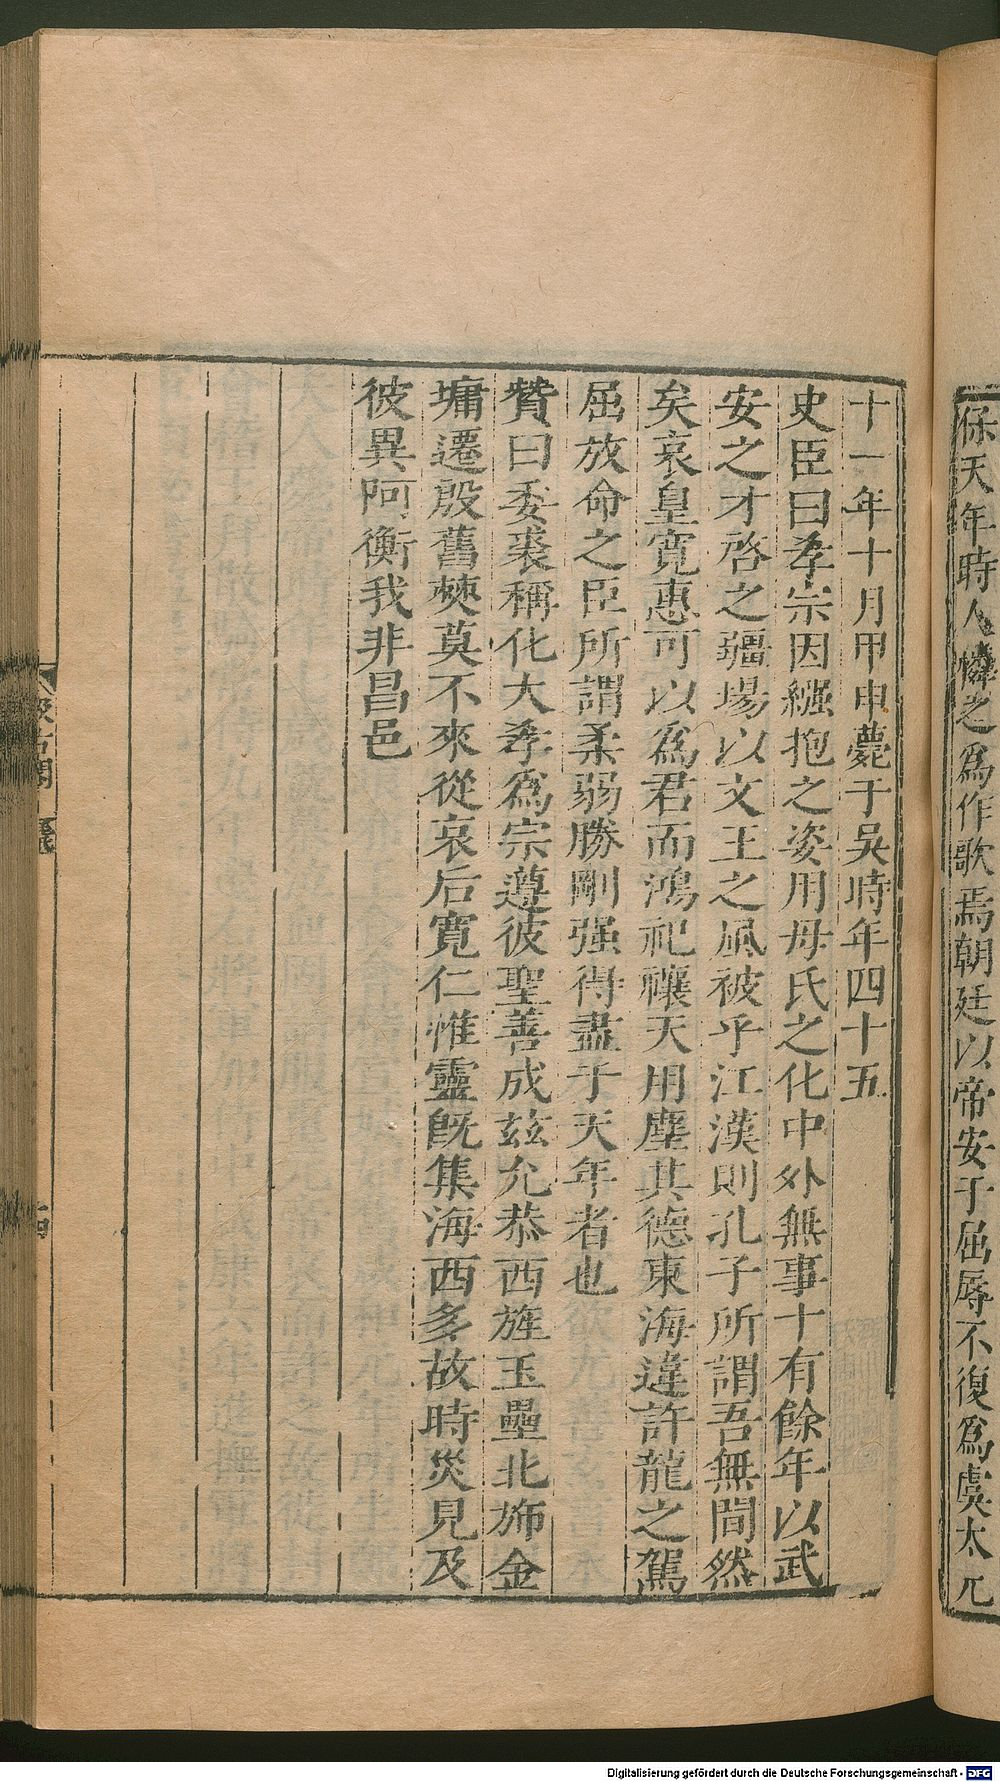 保天年時人憐之爲作歌焉朝廷以帝安于屈辱不復爲虞太元
十一年十月甲申薨于吳時年四十五
史臣曰孝宗因繦抱之姿用母氏之化中外無事十有餘年以武
安之才啓之疆場以文王之風被乎江漢則孔子所謂吾無間然
矣哀皇寬惠可以爲君而鴻祀禳天用塵其德東海違許龍之駕
屈放命之臣所謂柔弱勝剛强得盡于天年者也
贊曰委裘稱化大孝爲宗遵彼聖善成兹允恭西旌玉壘北斾金
墉遷殷舊僰莫不來從哀后寬仁惟靈旣集海西多故時災見及
彼異阿衡我非昌邑
汲古閣
十四
Digitalisierung gefördert durch die Deutsche Forschungsgemeinschaft - DFG